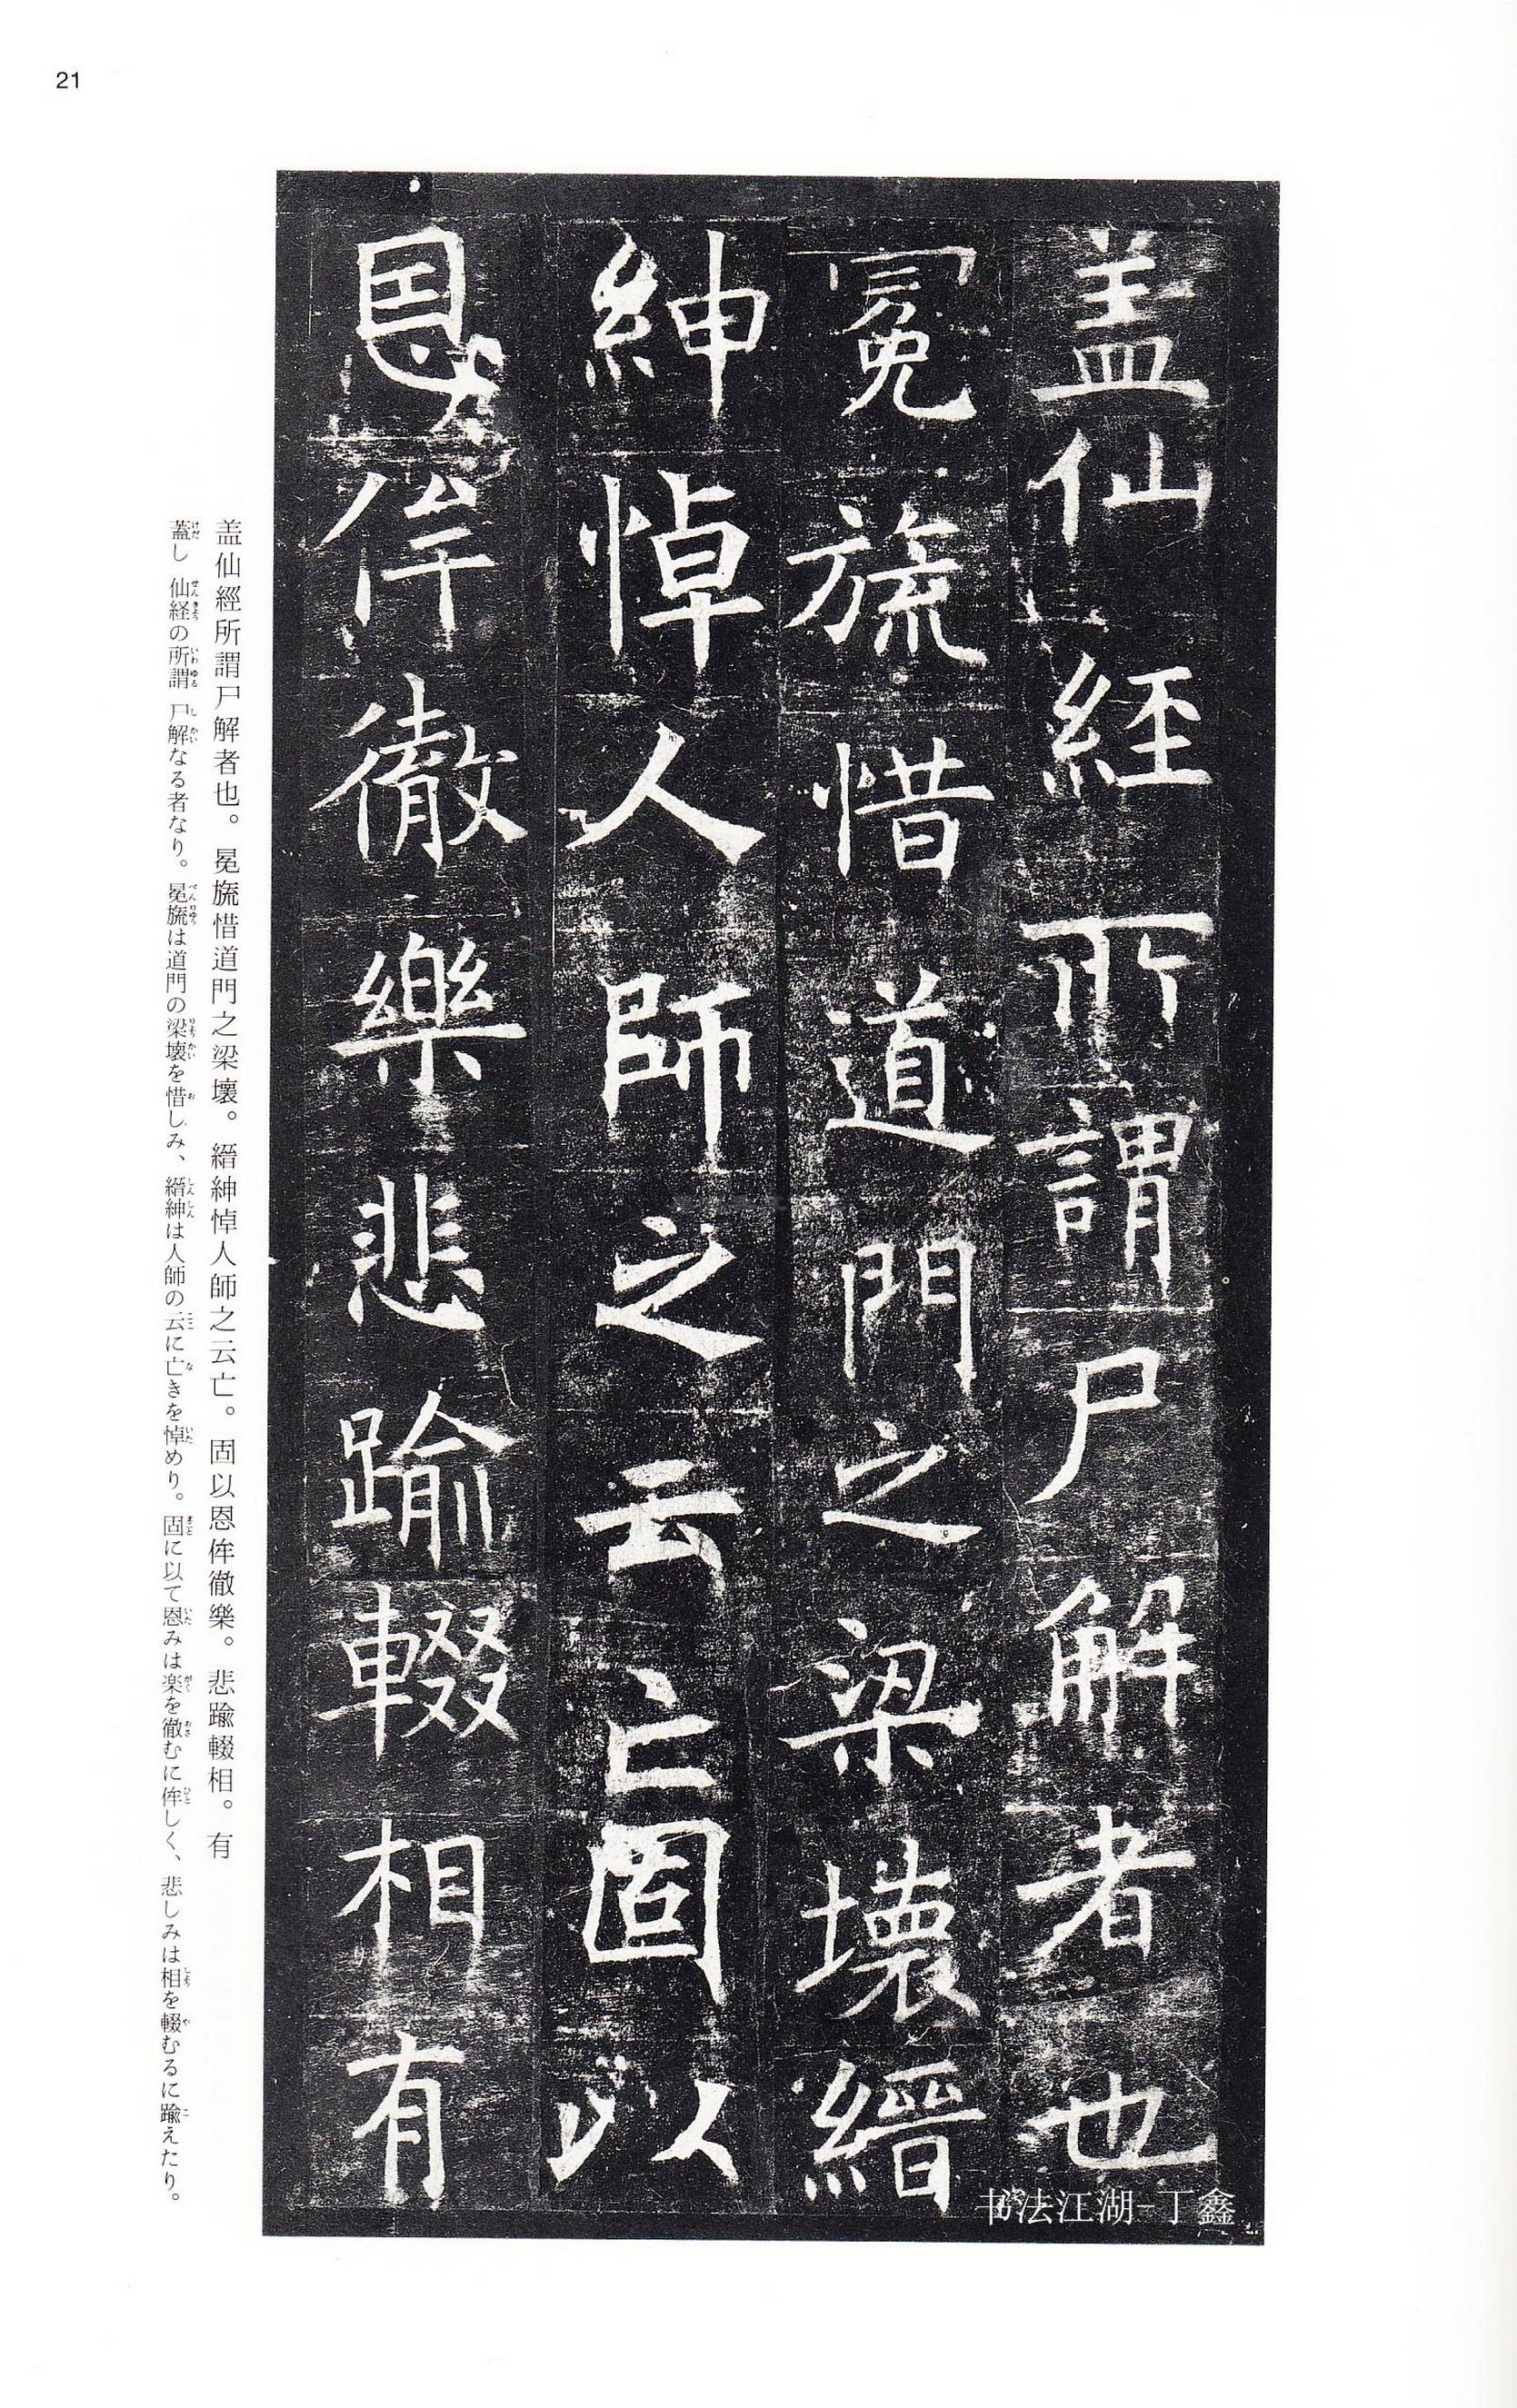 21
盖仙經所謂尸解者也
冕旒惜道門之梁壞縉
紳悼人師之云亡固以
恩侔徹樂悲踰輟相有
盖仙經所謂尸解者也。冕旒惜道門之梁壞。縉紳悼人師之云亡。固以恩侔徹樂。悲踰輟相。有
蓋し仙経の所謂尸解なる者なり。冕旒は道門の梁壊を惜しみ、縉紳は人師の云に亡きを悼めり。固に以て恩みは楽を徹むに侔しく、悲しみは相を輟むるに踰えたり。
书法江湖-丁鑫